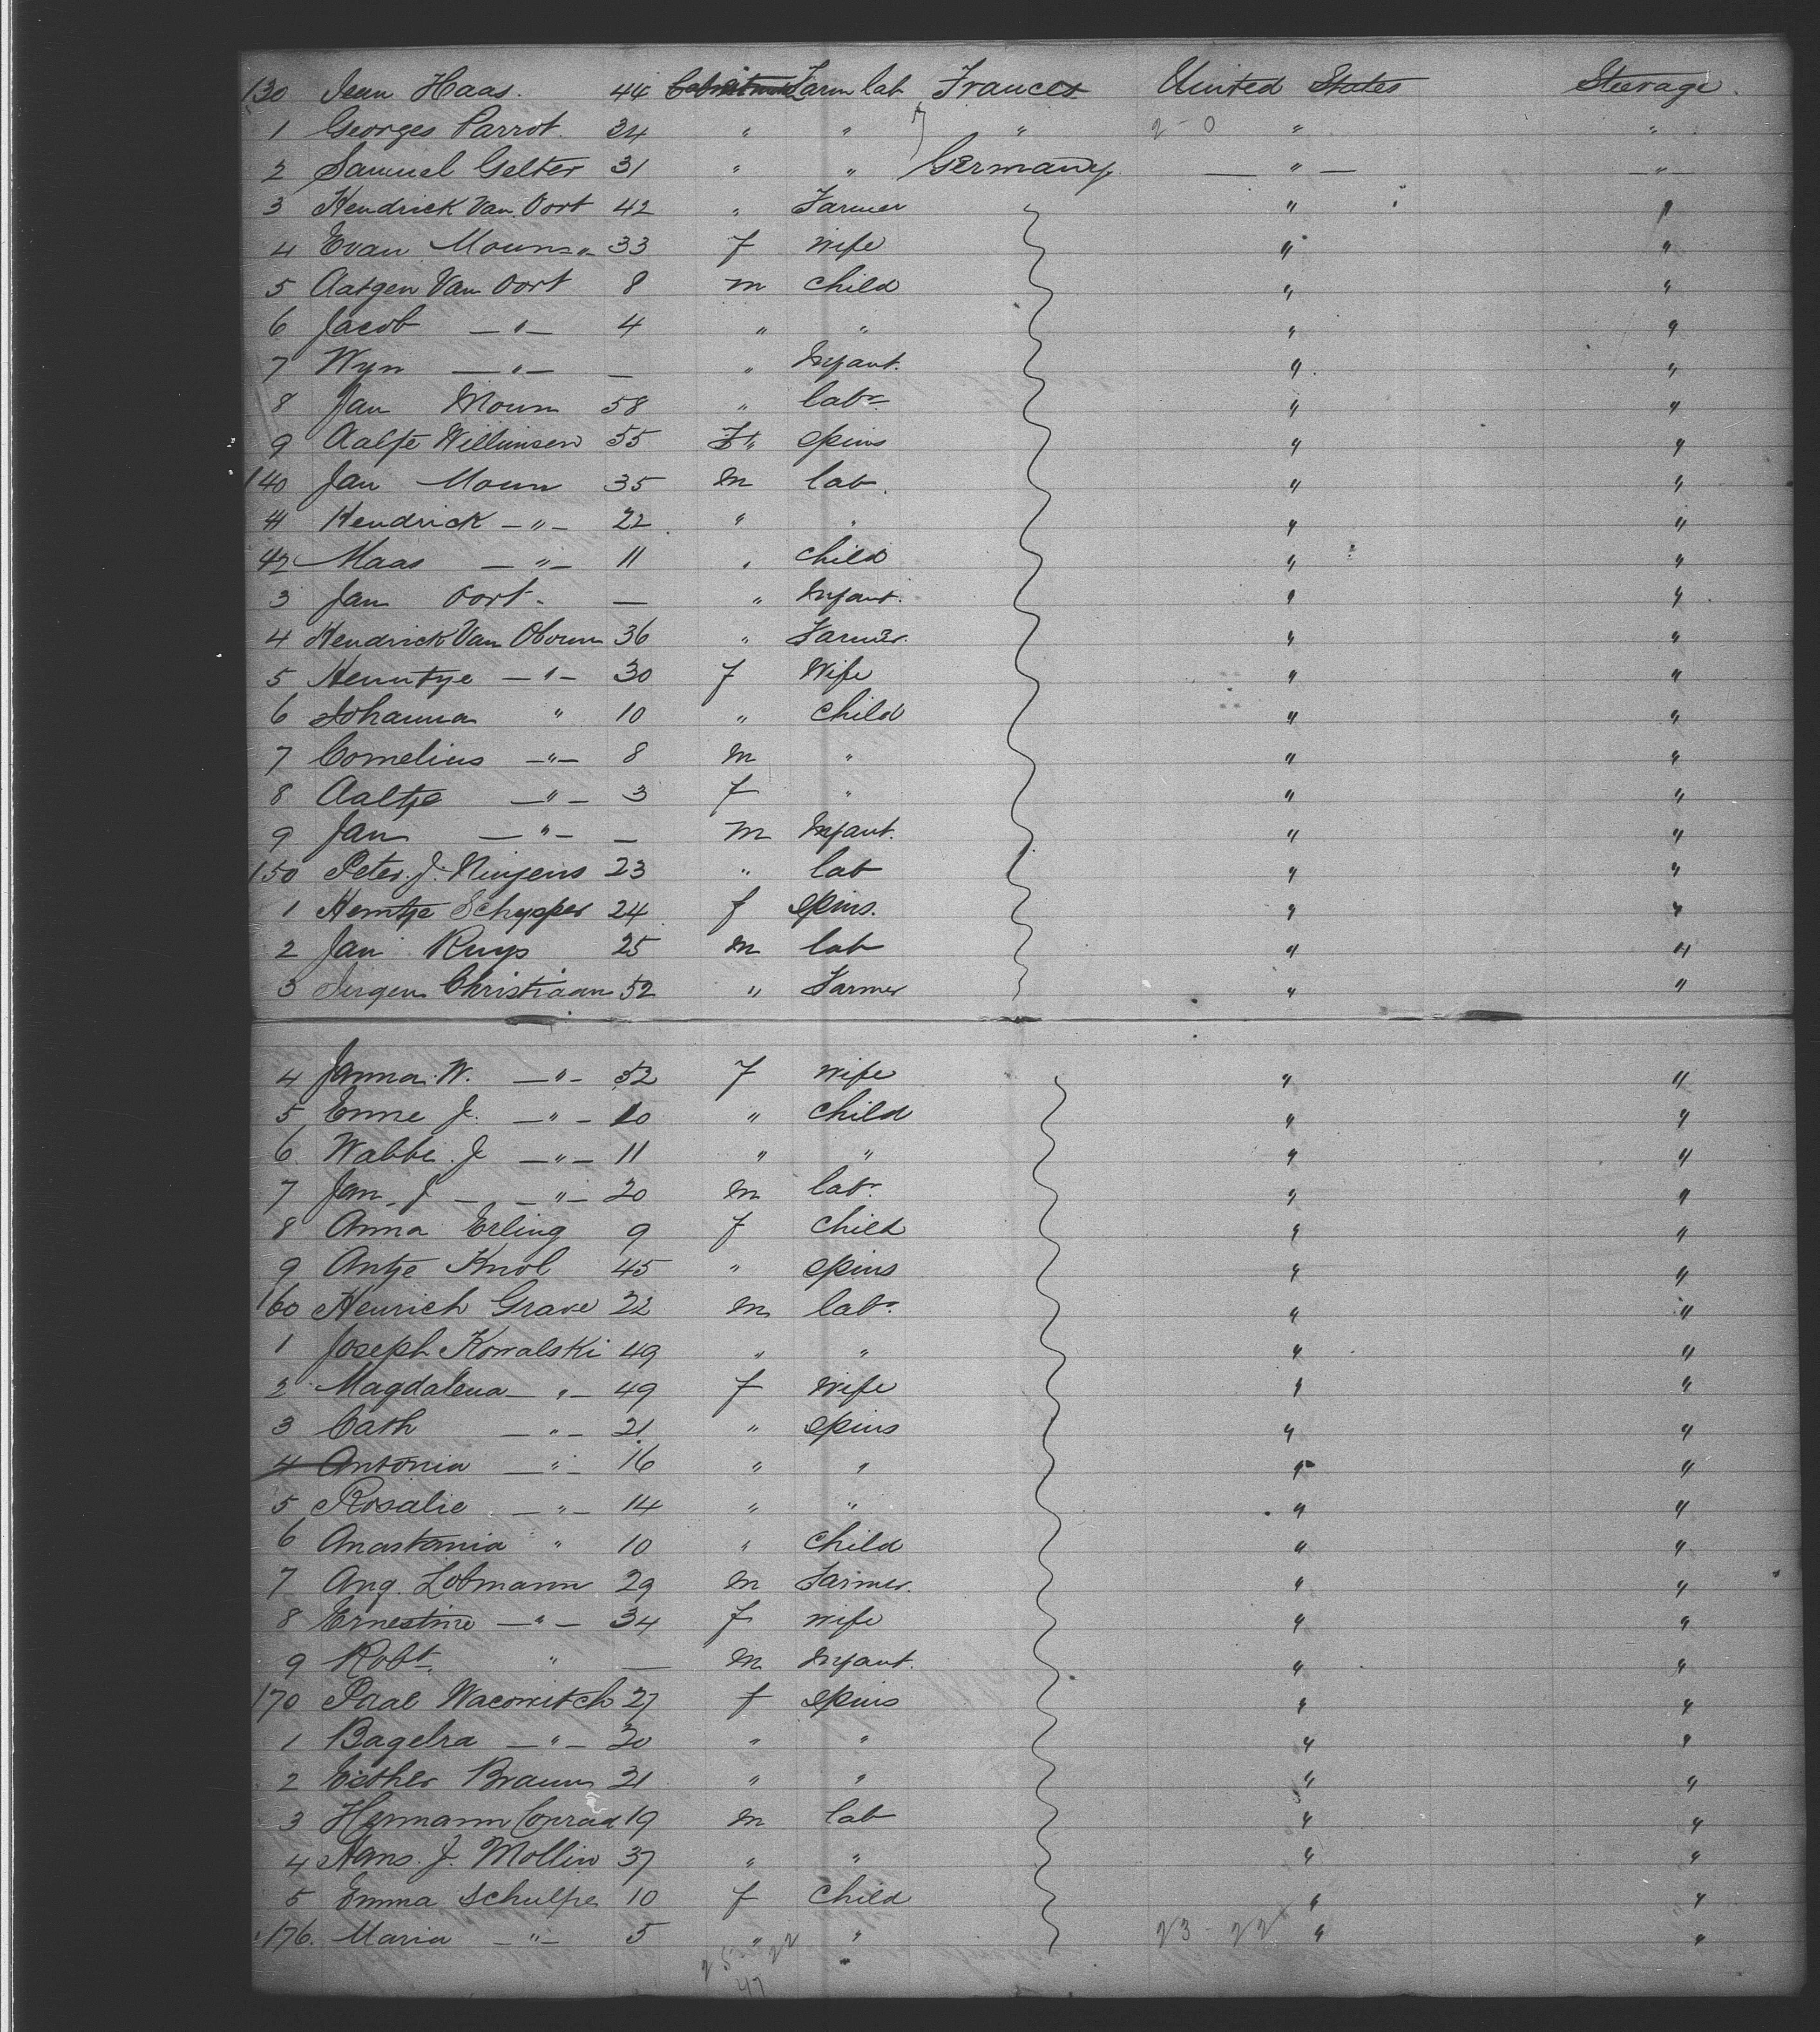 130 Jean Haas. 44 Farm lab France United States Steerage.
1 Georges Parrot. 34 " " " 2-0 " "
2 Samuel Gelter 31 " " Germany — " — — " —
3 Hendrick Van Oort 42 " Farmer " "
4 Evan Moum — " — 33 f wife " "
5 Aatgen Van Oort 8 m child " "
6 Jacob — " — 4 " " " "
7 Wyn — " — — " Infant. " "
8 Jan Moum 58 " labr " "
9 Aalfe Willimsen 55 f " spins " "
140 Jan Moum 35 m lab. " "
41 Hendrick — " — 22 " " " "
42 Maas — " — 11 " child " "
3 Jan Oort. — " Infant. " "
4 Hendrick Van Oboum 36 " Farmer. " "
5 Henntye — " — 30 f Wife " "
6 Johanna " 10 " child " "
7 Cornelius — " — 8 m " " "
8 Aaltje — " — 3 f " " "
9 Jan — " — — m Infant. " "
150 Peter. J. Ninjens 23 " lab " "
1 Hemtje Schypper 24 f spins. " "
2 Jan Ruys 25 m lab " "
3 Jurgen Christiaan 52 " Farmer " "
4 Janna. W. — " — 52 f wife " "
5 Enne J. — " — 10 " child " "
6. Wabbe. J — " — 11 " " " "
7 Jan J — " — 20 m labr. " "
8 Anna Erling 9 f child " "
9 Antje Knol 45 " spins " "
160 Heinrich Grave 22 m labr. " "
1 Joseph Kowalski 49 " " " "
2 Magdalena — " — 49 f wife " "
3 Cath — " — 21 " spins " "
4 Antonia — " — 16 " " " "
5 Rosalie — " — 14 " " " "
6 Anastania " 10 " child " "
7 Aug. Lotmann 29 m Farmer. " "
8 Ernestine — " — 34 f wife " "
9 Robt. " — m Infant. " "
170 Pral Wacowitch 27 f spins " "
1 Bagelra — " — 20 " " " "
2 Esther Braun 21 " " " "
3 Hermann Conrad 19 m lab " "
4 Hans. J. Mollin 37 " " " "
5 Emma Schulpe 10 f child " "
176. Maria — " — 5 " " 23 - 22 " "
25 22
47